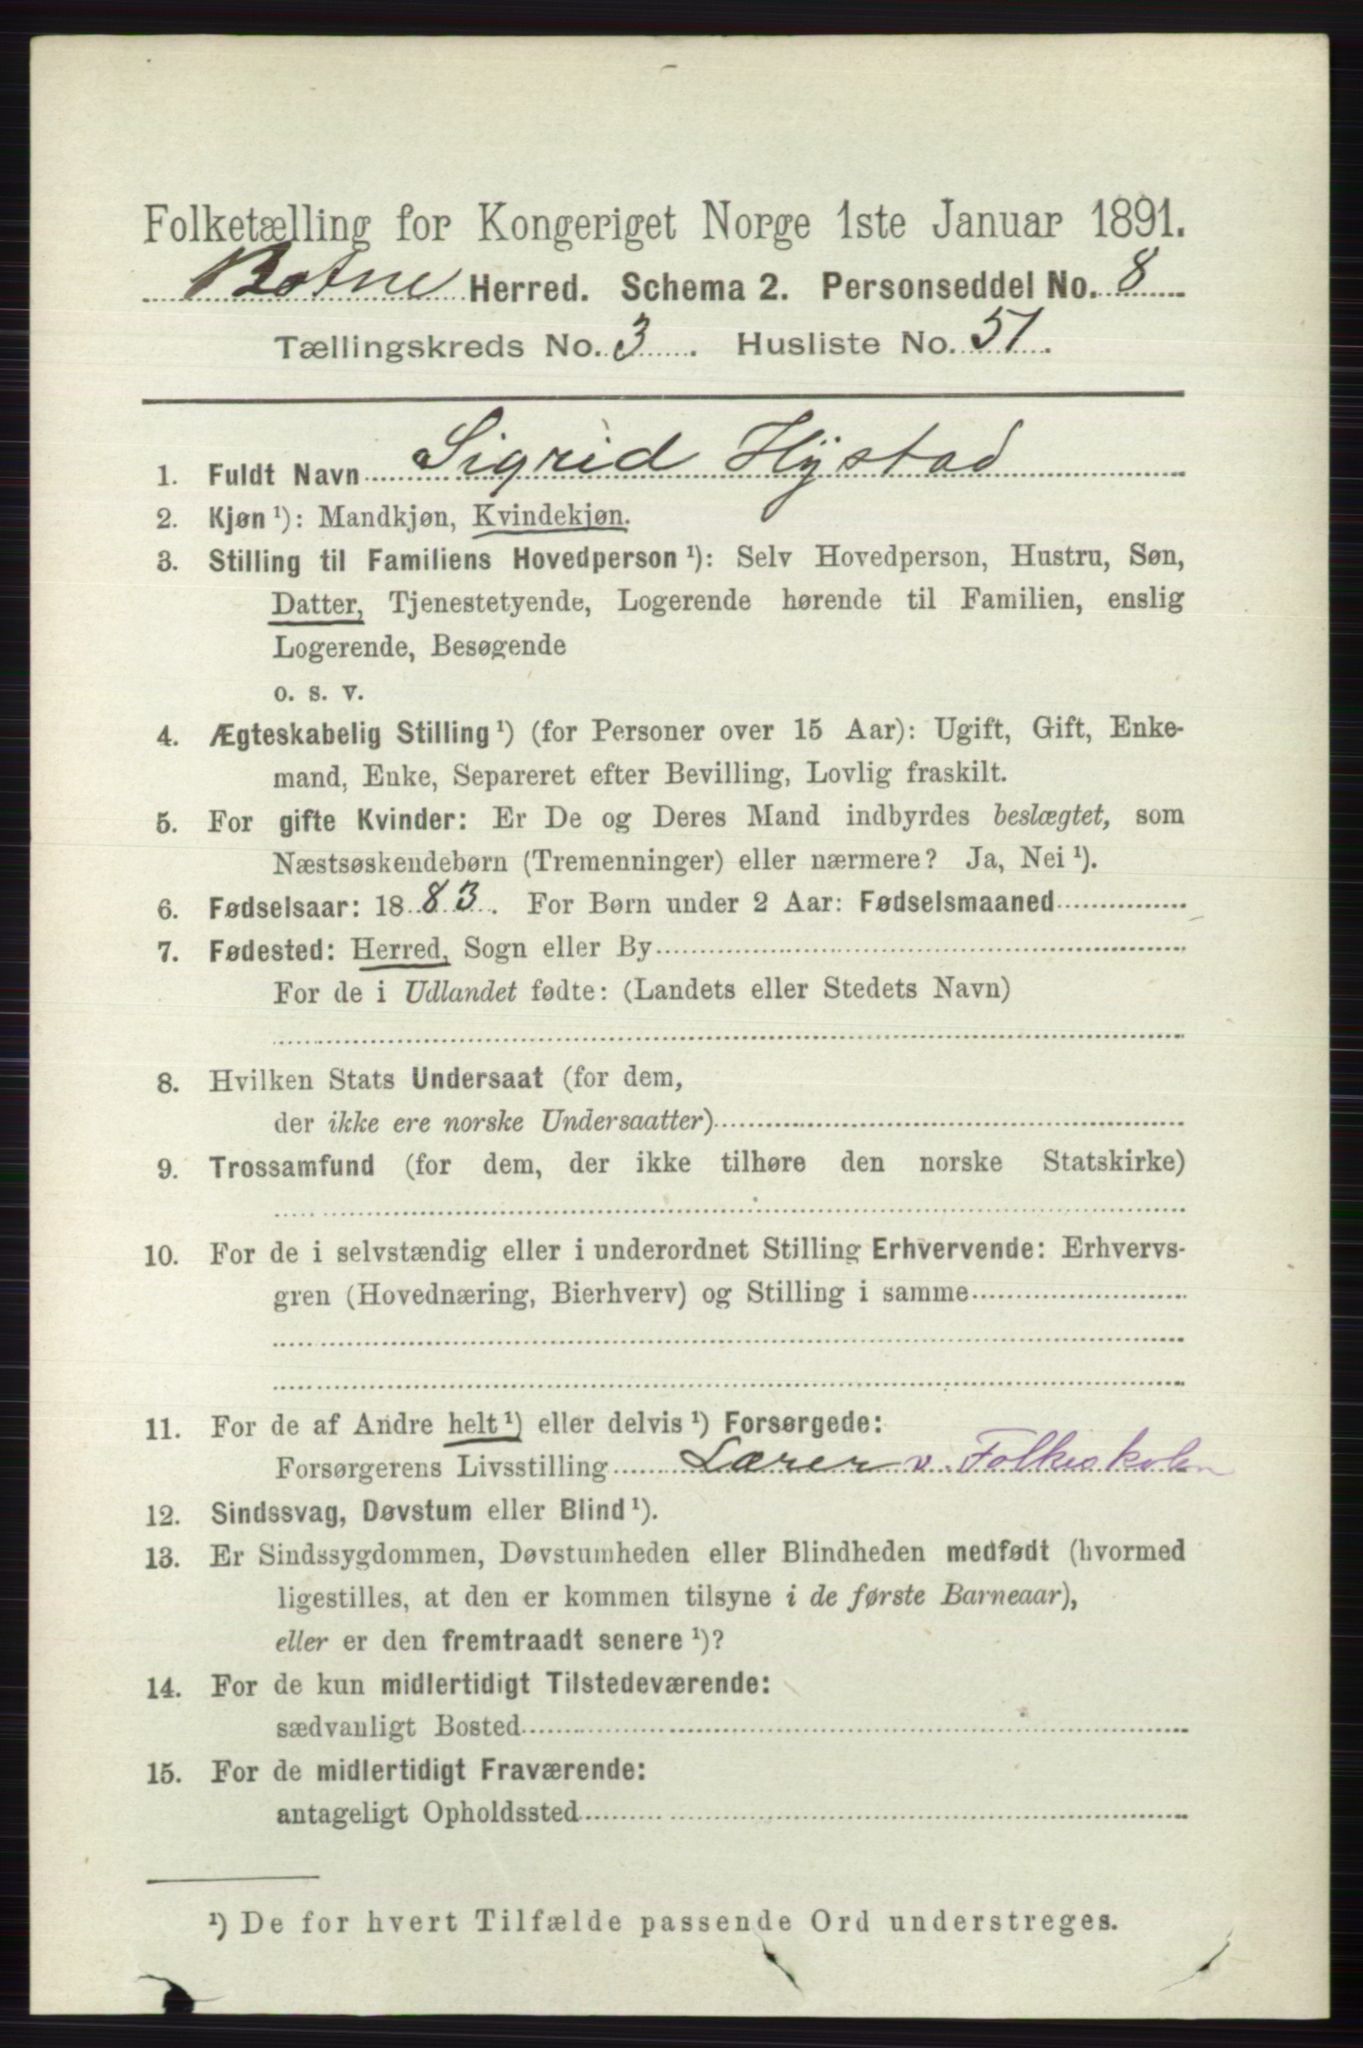 Folketælling for Kongeriget Norge 1ste Januar 1891.
Botne Herred. Schema 2. Personseddel No. 8
Tællingskreds No. 3. Husliste No. 51.
1. Fuldt Navn Sigrid Hÿstad
2. Kjøn ¹): Mandkjøn, Kvindekjøn.
3. Stilling til Familiens Hovedperson ¹): Selv Hovedperson, Hustru, Søn,
Datter, Tjenestetyende, Logerende hørende til Familien, enslig
Logerende, Besøgende
o. s. v.
4. Ægteskabelig Stilling ¹) (for Personer over 15 Aar): Ugift, Gift, Enke-
mand, Enke, Separeret efter Bevilling, Lovlig fraskilt.
5. For gifte Kvinder: Er De og Deres Mand indbyrdes beslægtet, som
Næstsøskendebørn (Tremenninger) eller nærmere? Ja, Nei ¹).
6. Fødselsaar: 1883. For Børn under 2 Aar: Fødselsmaaned
7. Fødested: Herred, Sogn eller By
For de i Udlandet fødte: (Landets eller Stedets Navn)
8. Hvilken Stats Undersaat (for dem,
der ikke ere norske Undersaatter)
9. Trossamfund (for dem, der ikke tilhøre den norske Statskirke)
10. For de i selvstændig eller i underordnet Stilling Erhvervende: Erhvervs-
gren (Hovednæring, Bierhverv) og Stilling i samme
11. For de af Andre helt ¹) eller delvis ¹) Forsørgede:
Forsørgerens Livsstilling Lærer v. Folkeskolen
12. Sindssvag, Døvstum eller Blind ¹).
13. Er Sindssygdommen, Døvstumheden eller Blindheden medfødt (hvormed
ligestilles, at den er kommen tilsyne i de første Barneaar),
eller er den fremtraadt senere ¹)?
14. For de kun midlertidigt Tilstedeværende:
sædvanligt Bosted
15. For de midlertidigt Fraværende:
antageligt Opholdssted
¹) De for hvert Tilfælde passende Ord understreges.